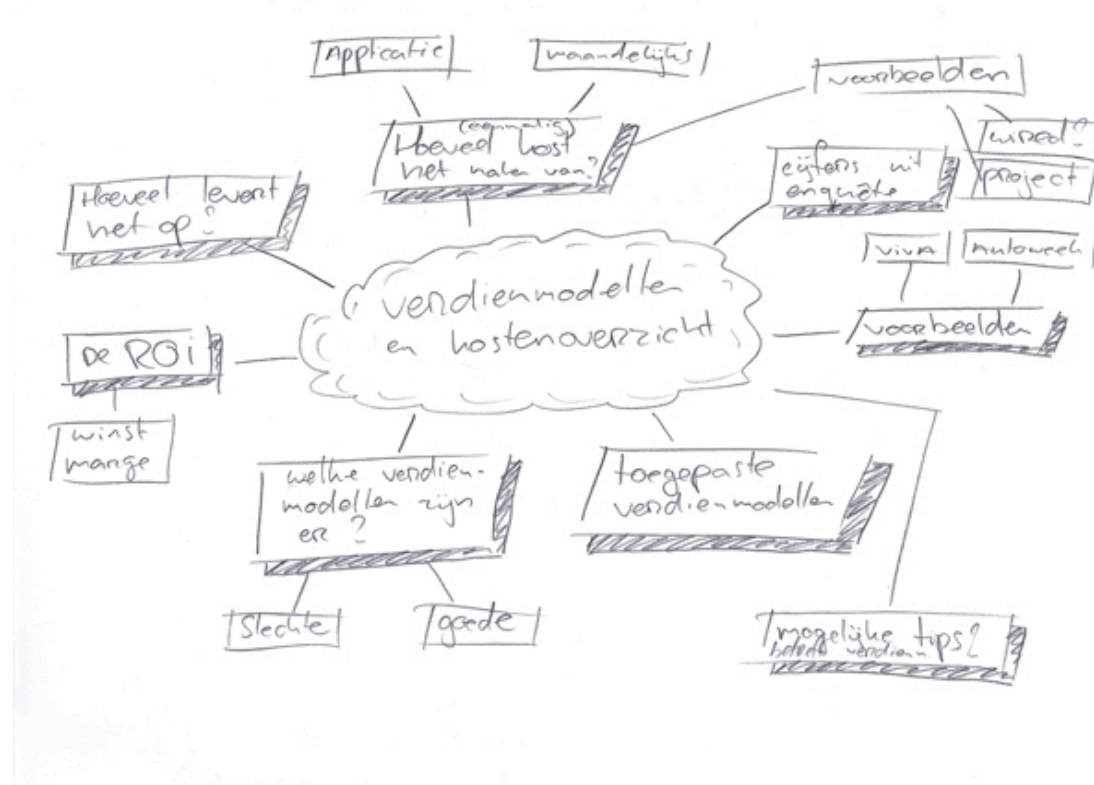 Applicatie
maandelijks
voorbeelden
(eenmalig)
Hoeveel kost
het maken van?
wired?
project
cijfers uit
enquête
Hoeveel levert
het op?
VIVA
Autoweek
verdienmodellen
en kostenoverzicht
voorbeelden
De ROi
winst
marge
welke verdien-
modellen zijn
er?
toegepaste
verdienmodellen
Slechte
goede
mogelijke tips?
verdienm